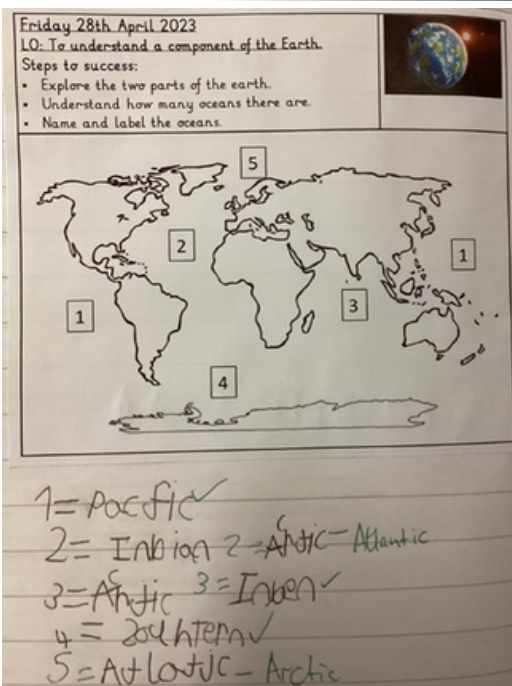 Friday 28th April 2023
LO: To understand a component of the Earth.
Steps to success:
• Explore the two parts of the earth.
• Understand how many oceans there are.
• Name and label the oceans.
5
2
1
3
1
4
1 = pacific ✓
2 = Inbian 2 = Arctic - Atlantic
3 = Arctic 3 = Inben ✓
4 = Southern ✓
5 = Atlatic - Arctic